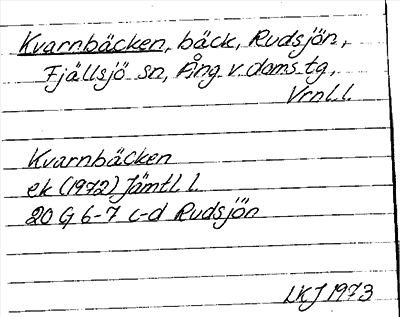 Kvarnbäcken, bäck, Rudsjön,
Fjällsjö sn, Ång. v. doms. tg,
Vrnl. l.
Kvarnbäcken
ek (1972) Jämtl. l.
20 G 6-7 c-d Rudsjön
LKJ 1973